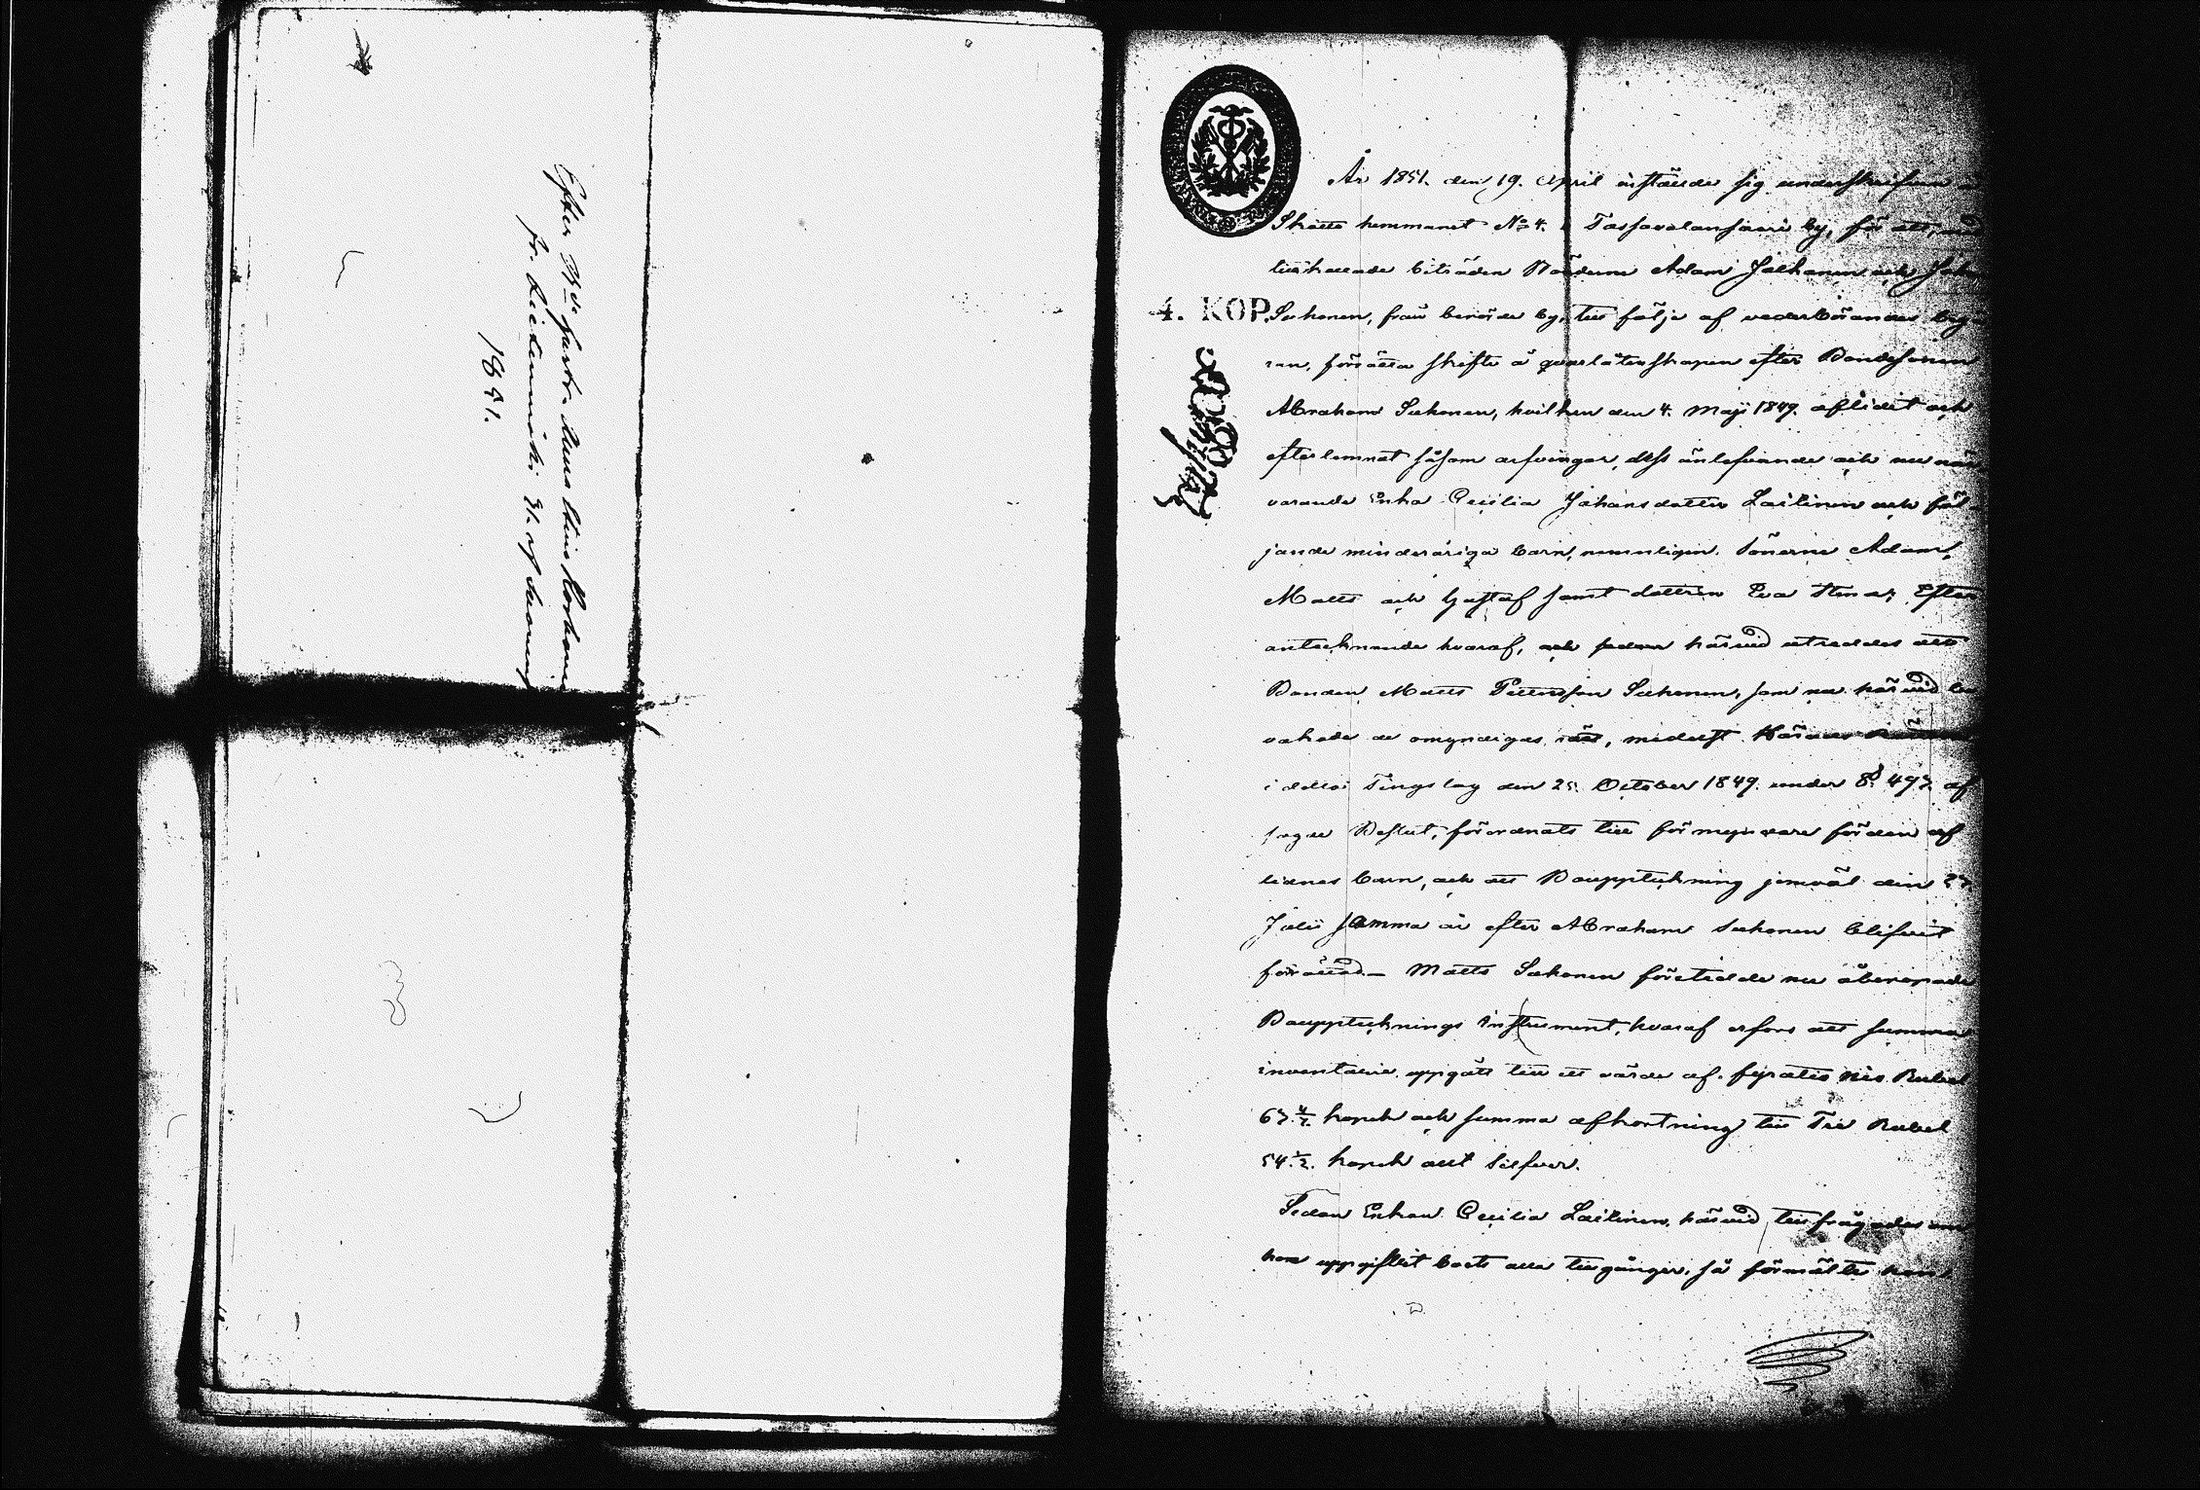 Efter Bd. hustr. Anna Stina Korhonen
fr. Leidenmäki. 31. af Savonius
1851.
År 1851. den 19. April instälde sig undertecknad å
Skatte hemmanet No 4. i Tassavalansaari by, för att, med
tillhallande biträden Bönderne Adam Jalkanen och Johan
4. KOP. Sukonen, från berörde by, till följe af vederbörandes begä-
ran, förrätta skifte å qvarlåtenskapen efter Bondesonen
Abraham Sukonen, hvilken den 4. Maji 1849. aflidit och
efterlemnat såsom arfvingar, dess änlefvande och nu när-
varande Enka Cecilia Johansdotter Laitinen och föl-
jande minderåriga barn, nemligen. Sönerne Adam,
Matts och Gustaf samt dottren Eva Stina; Efter
antecknande hvaraf, och sedan härvid utreddes att
Bonden Matts Pettersson Sukonen, som nu härvid be-
vakade de omyndigas rätt, medelst Härads Rättens
i detta Tingslag den 25. October 1849. under § 497. af-
sagde Beslut, förordnats till förmyndare för den af-
lidnes barn, och att Bouppteckning jemväl den 27
Julii samma år efter Abraham Sukonen blifvit
förrättad. — Matts Sukonen företedde nu åberopade
Boupptecknings instrument, hvaraf erfors att summa
inventarie uppgått till ett värde af fyratio nio Rubel
67 1/7. kopek och summa afkortning till Tio Rubel
54. 1/2. kopek allt Silfver.
Sedan Enkan Cecilia Laitinen, härvid tillfrågades om
hon uppgifvit boets alla tillgångar, så förmälte hon